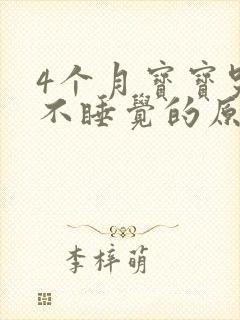 4个月寶寶哭
不睡覺的原
李梓萌